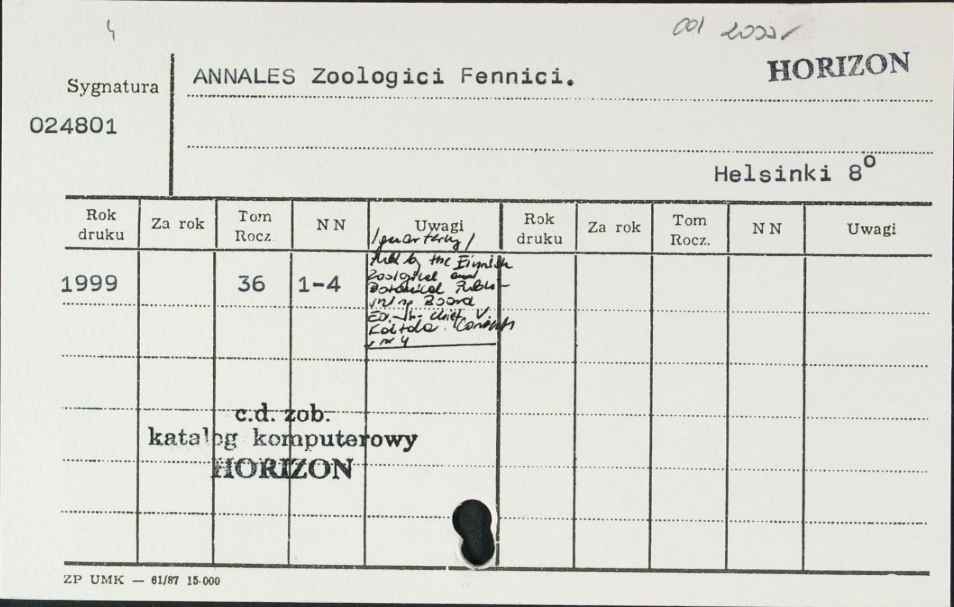 4
001 2000r
HORIZON
Sygnatura
ANNALES Zoologici Fennici.
024801
Helsinki 8°
Rok druku Za rok Tom Rocz. NN Uwagi Rok druku Za rok Tom Rocz. NN Uwagi
/quarterly/
1999 36 1-4
Publ. by the Finnish
Zoological and
Botanical Publi-
shing Board
Ed.-in-chief V.
Kaitala. Contents
nr 4
c.d. zob.
katalog komputerowy
HORIZON
ZP UMK — 61/87 15-000